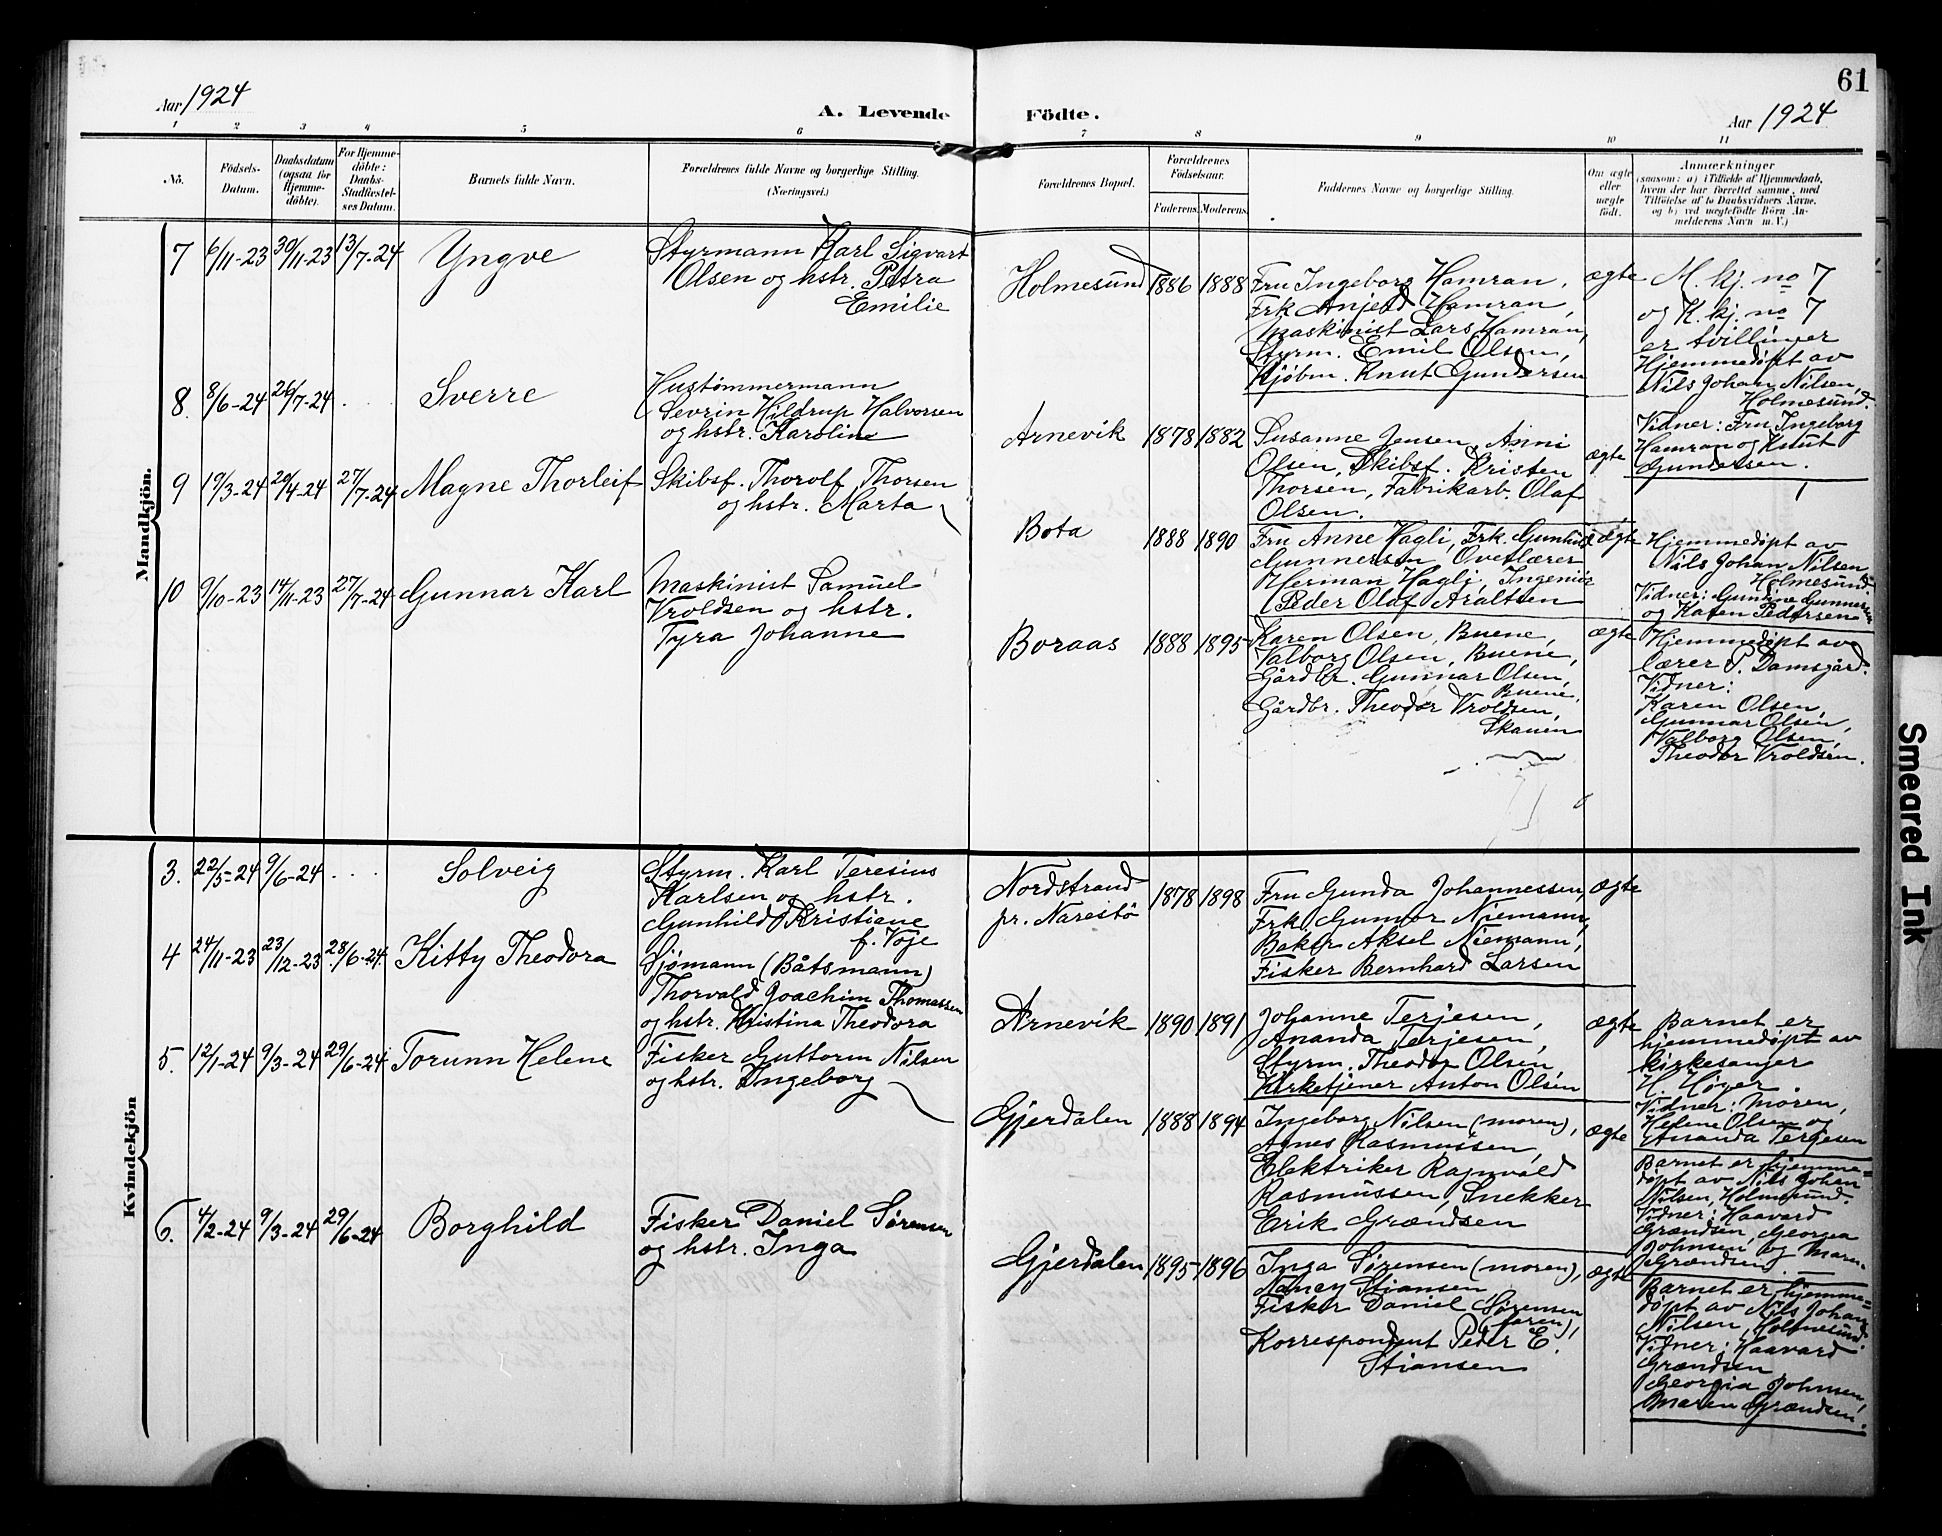 61
Aar 1924
A. Levende
Födte.
Aar 1924
1 2 3 4 5 6 7 8 9 10 11
No.
Födsels-
Datum.
Daabsdatum
(ogsaa for
Hjemme-
döbte).
For Hjemme-
döbte:
Daabs-
Stadfæstel-
ses Datum.
Barnets fulde Navn.
Forældrenes fulde Navne og borgerlige Stilling.
(Næringsvei.)
Forældrenes Bopæl.
Forældrenes
Födselsaar.
Faderens. Moderens.
Faddernes Navne og borgerlige Stilling.
Om ægte
eller
uægte
födt.
Anmærkninger
(saasom: a) i Tilfælde af Hjemmedaab,
hvem der har forrettet samme, med
Tilföielse af to Daabsvidners Navne,
og b) ved uægtefödte Börn An-
melderens Navn m. V.)
Mandkjön.
7 6/11-23 30/11-23 13/7-24 Yngve
Styrmann Karl Sigvart
Olsen og hstr. Petra
Emilie
Holmesund 1886 1888
Fru Ingeborg Hamran,
Frk Anjeld Hamran,
Maskinist Lars Hamran,
Styrm. Emil Olsen,
Kjøbm. Knut Gundersen
ægte
M. kj. no 7
og K. kj. no 7
er tvillinger
Hjemmedøpt av
Nils Johan Nilsen,
Holmesund.
Vidner: Fru Ingeborg
Hamran og Knut
Gundersen.
8. 8/6-24 26/7-24 . . . Sverre
Hustømmermann
Sevrin Hildrup Halvorsen
og hstr. Karoline
Arnevik 1878 1882
Susanne Jensen, Anni
Olsen, Skibsf. Kristen
Thorsen, Fabrikarb. Olaf
Olsen.
ægte
9 19/3-24 20/4-24 27/7-24 Magne Thorleif
Skibsf. Thorolf Thorsen
og hstr. Marta
Bota 1888 1890
Fru Anne Hagli, Frk. Gunhild
Gunnersen, Overlærer
Herman Hagli, Ingeniør
Peder Olaf Araltsen
ægte
Hjemmedøpt av
Nils Johan Nilsen
Holmesund.
Vidner: Guntine Gunnersen
og Karen Pedersen
10 9/10-23 14/11-23 27/7-24 Gunnar Karl
Maskinist Samuel
Vroldsen og hstr.
Tyra Johanne
Boraas 1888 1895
Karen Olsen, Buene,
Valborg Olsen, Buene,
Gårdbr. Gunnar Olsen,
Buene,
Gårdbr. Theodor Vroldsen,
Skauen
ægte
Hjemmedøpt av
lærer P. Damsgård.
Vidner:
Karen Olsen,
Gunnar Olsen,
Valborg Olsen,
Theodor Vroldsen.
Kvindekjön
3. 22/5-24 9/6-24 . . . Solveig
Styrm. Karl Teresius
Karlsen og hstr.
Gunhild Kristiane
f. Voje
Nordstrand
pr. Narestö
1878 1898
Fru Gunda Johannessen,
Frk. Gunvor Niemann,
Baker Aksel Niemann,
Fisker Bernhard Larsen
ægte
4 24/11-23 23/12-23 28/6-24. Kitty Theodora
Sjømann (Båtsmann)
Thorvald Joachim Thomassen
og hstr. Kristina Theodora
Arnevik 1890 1891
Johanne Terjesen,
Ananda Terjesen,
Styrm. Theodor Olsen
Kirketjener Anton Olsen
ægte
Barnet er
hjemmedøpt av
kirkesanger
H. Høyer.
Vidner: Moren,
Helene Olsen og
Ananda Terjesen
5. 12/1-24 9/3-24 29/6-24 Torunn Helene
Fisker Guttorm Nilsen
og hstr. Ingeborg
Gjerdalen 1888 1894
Ingeborg Nilsen (moren),
Agnes Rasmussen,
Elektriker Ragnvald
Rasmussen, Snekker
Erik Grændsen
ægte
Barnet er hjemme=
døpt av Nils Johan
Nilsen, Holmesund.
Vidner: Haavard
Grændsen, Georgia
Johnsen og Maren
Grændsen.
6. 4/2-24 9/3-24 29/6-24 Borghild
Fisker Daniel Sørensen
og hstr. Inga
Gjerdalen 1895 1896
Inga Sørensen (moren),
Nancy Stiansen
Fisker Daniel Sørensen
(faren),
Korrespondent Peder E.
Stiansen
ægte
Barnet er hjemme=
døpt av Nils Johan
Nilsen, Holmesund.
Vidner: Haavard
Grændsen
Georgia Johnsen,
Maren Grændsen.
Smeared Ink